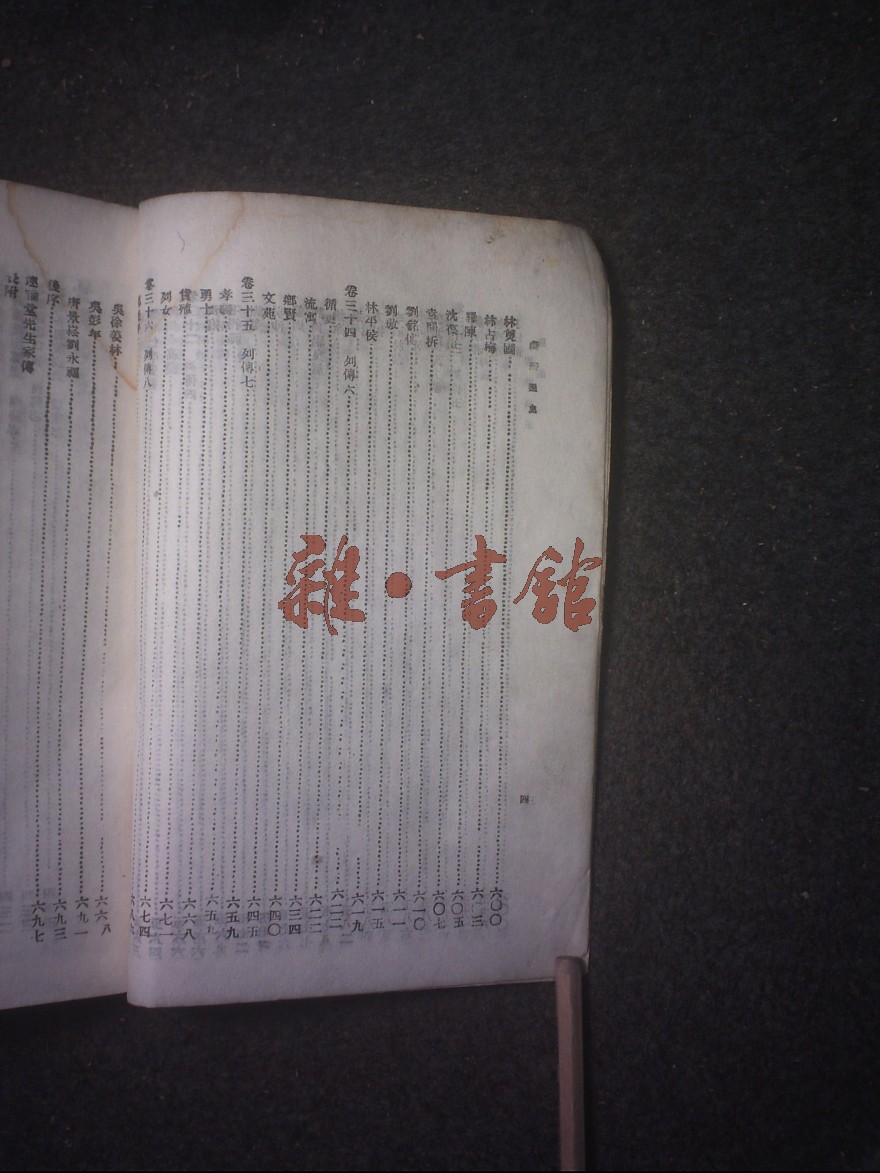 四
林奠國 六〇〇
林占梅 六〇三
羅陳 六〇五
沈葆 六〇七
袁聞柝 六一〇
劉銘傳 六一一
劉璈 六一五
林平侯 六一九
卷三十四 列傳六
循吏 六二二
流寓 六三四
鄉賢 六四〇
文苑 六四五
卷三十五 列傳七 六五九
孝 六五九
勇士 六六八
貨殖 六七一
列女 六七四
卷三十六 列傳八
吳徐姜林
吳彭年 六九一
唐景崧劉永福 六九三
後序 六九七
連雅堂先生家傳
雜·書館